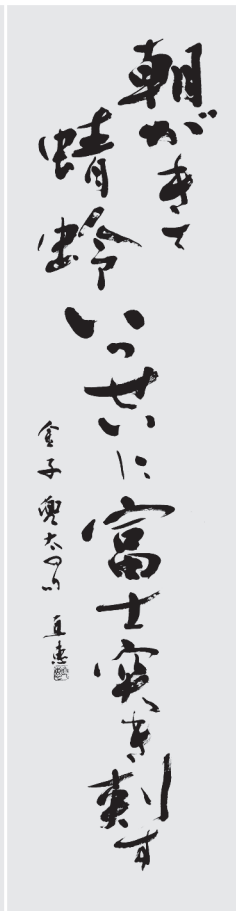 朝がきて
蜻蛉いっせいに富士突き刺す
金子兜太の句